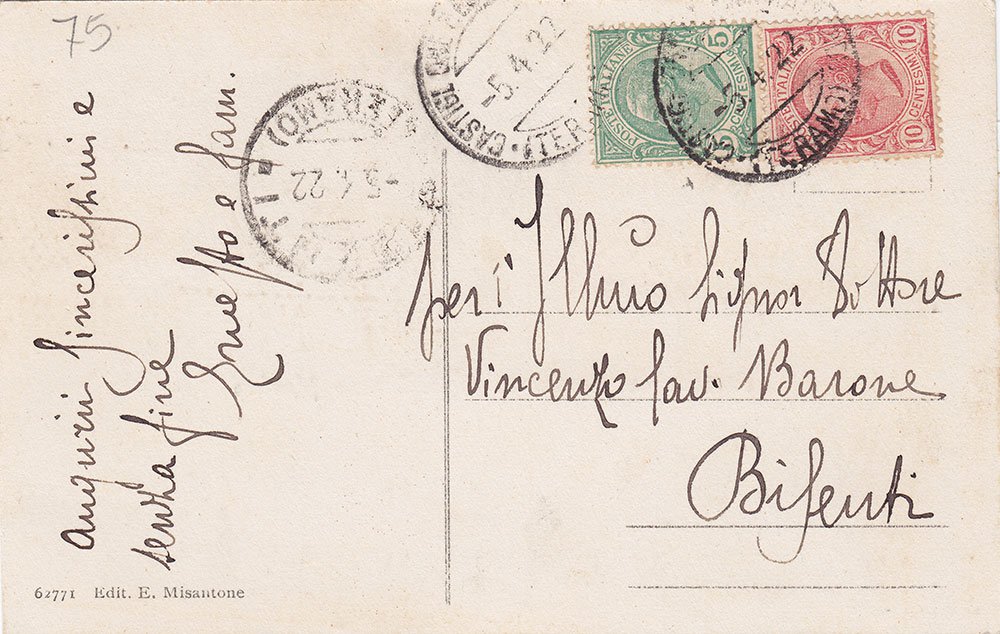 75
Augurii sincerissimi e
senza fine
Ernesto e fam.
62771 Edit. E. Misantone
CASTIGL
-5.4.22
(TERAMO)
POSTE ITALIANE
5
CENTESIMI
5
4.22
(TERAMO)
POSTE ITALIANE
10
CENTESIMI
10
(TERAMO)
-5.4.22
per l' Illmo Signor Dottore
Vincenzo Sav. Barone
Bisenti